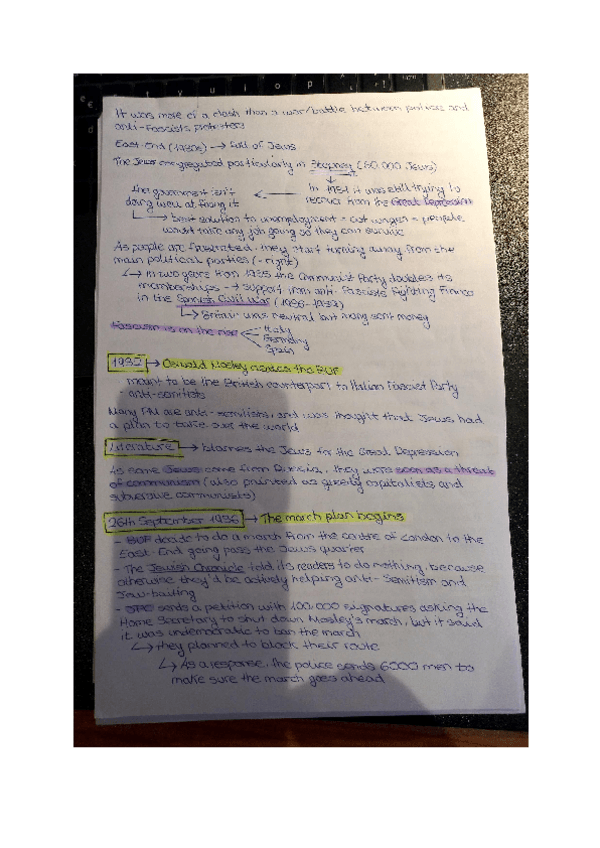 It was more of a clash than a war/battle between police and
anti-Fascists protestors
East-End (1930s) → full of Jews
The Jews congregated particularly in Stepney (60.000 Jews)
the government isn't
doing well at fixing it
In 1934 it was still trying to
recover from the Great Depression
solution to unemployment = cut wages = people
would take any job going so they can survive
As people are frustrated, they start turning away from the
main political parties (- right)
↳ In two years from 1935 the Communist Party doubles its
memberships → support from anti-Fascists fighting Franco
in the Spanish Civil War (1936-1939)
↳ Britain was neutral but sent money
Fascism is on the rise
Italy
Germany
Spain
1932 → Oswald Mosley creates the BUF
- meant to be the British counterpart to Italian Fascist Party
- anti-semites
Many are anti-semitists, and was thought that Jews had
a plan to take over the world
Literature → blames the Jews for the Great Depression
As some Jews come from Russia, they were seen as a threat
of communism (also painted as greedy capitalists and
subversive communists)
26th September 1936 → The march plan begins
- BUF decide to do a march from the centre of London in the
East-End going pass the Jews quarter
- The Jewish Chronicle told its readers to do nothing, because
otherwise they'd be actively helping anti-Semitism and
Jew-baiting
- JPC sends a petition with 100.000 signatures asking the
Home Secretary to shut down Mosley's march, but it said
it was undemocratic to ban the march
↳ they planned to block their route
↳ As a response, the police sends 6000 men to
make sure the march goes ahead